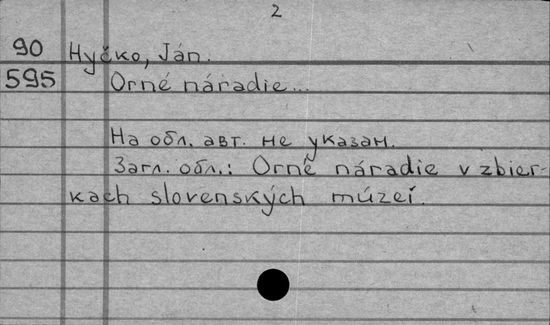 2
90 Hyčko, Ján.
595 Orné náradie...
На обл. авт. не указан.
Загл. обл.: Orné náradie v zbier-
kach slovenských múzeí.